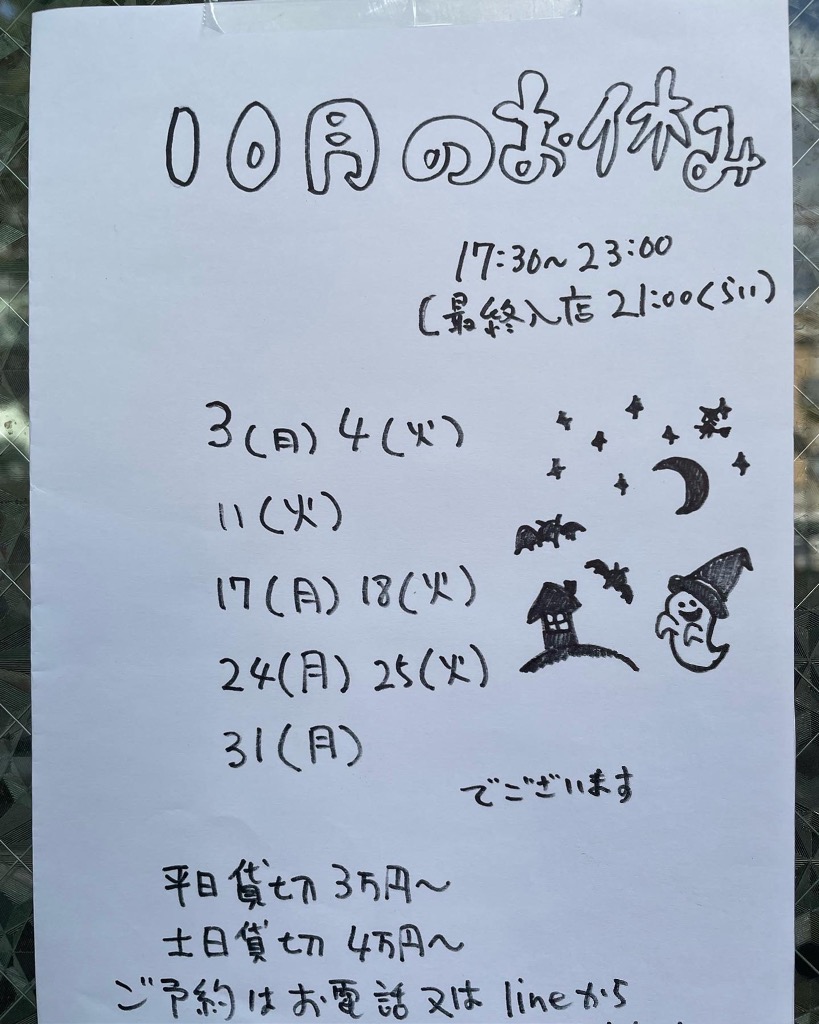 10月のお休み
17:30~23:00
(最終入店21:00くらい)
3(月) 4(火)
11(火)
17(月) 18(火)
24(月) 25(火)
31(月)
でございます
平日貸切 3万円~
土日貸切 4万円~
ご予約はお電話又はlineから